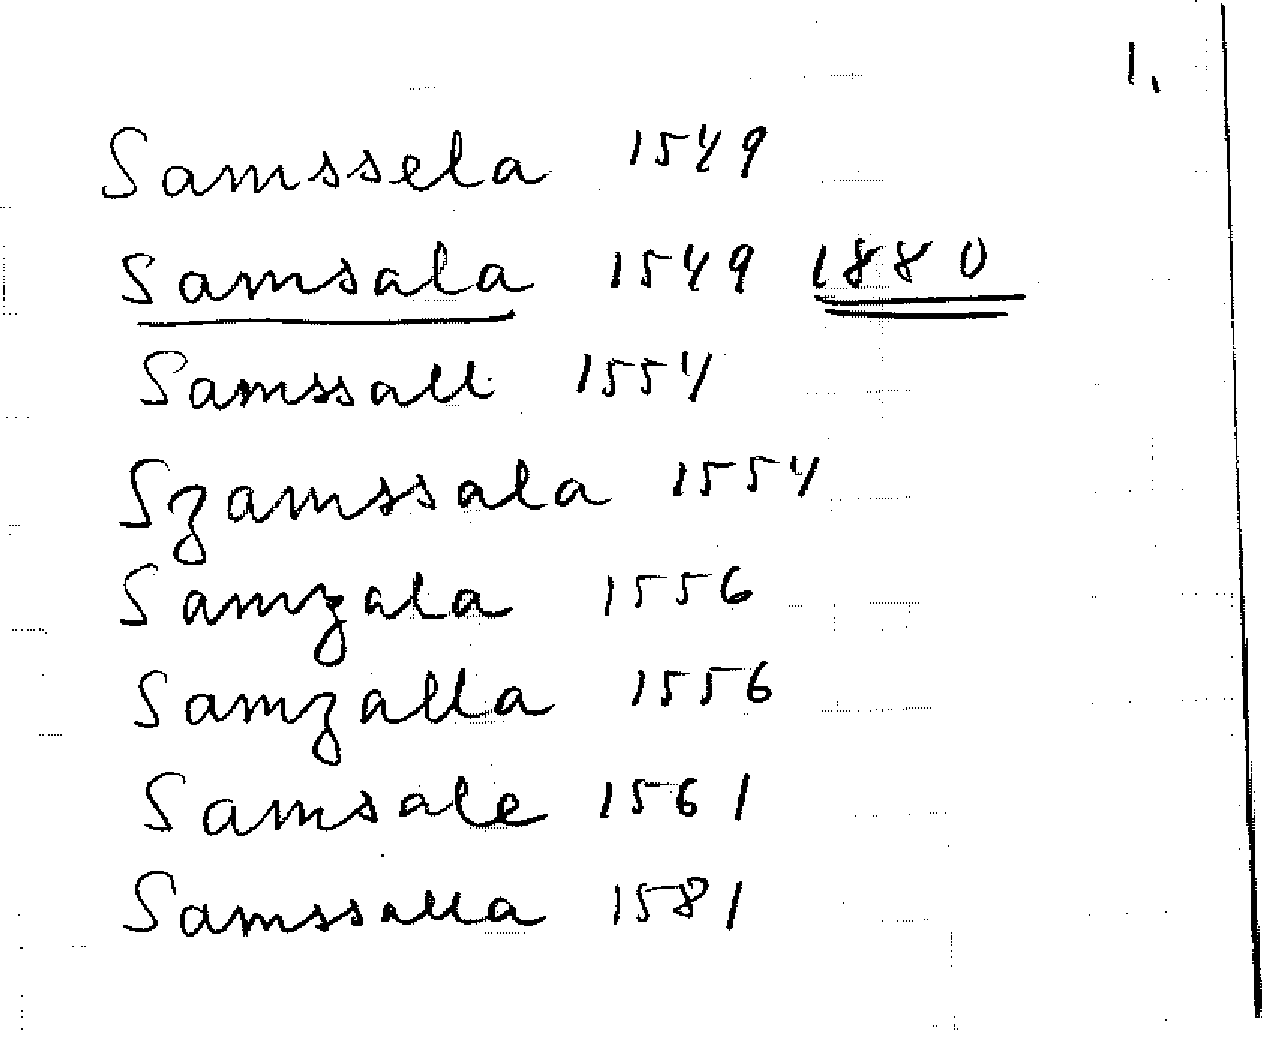 1.
Samssela 1549
Samsala 1549 1880
Samssall 1554
Szamssala 1554
Samzala 1556
Samzalla 1556
Samsale 1561
Samssalla 1581